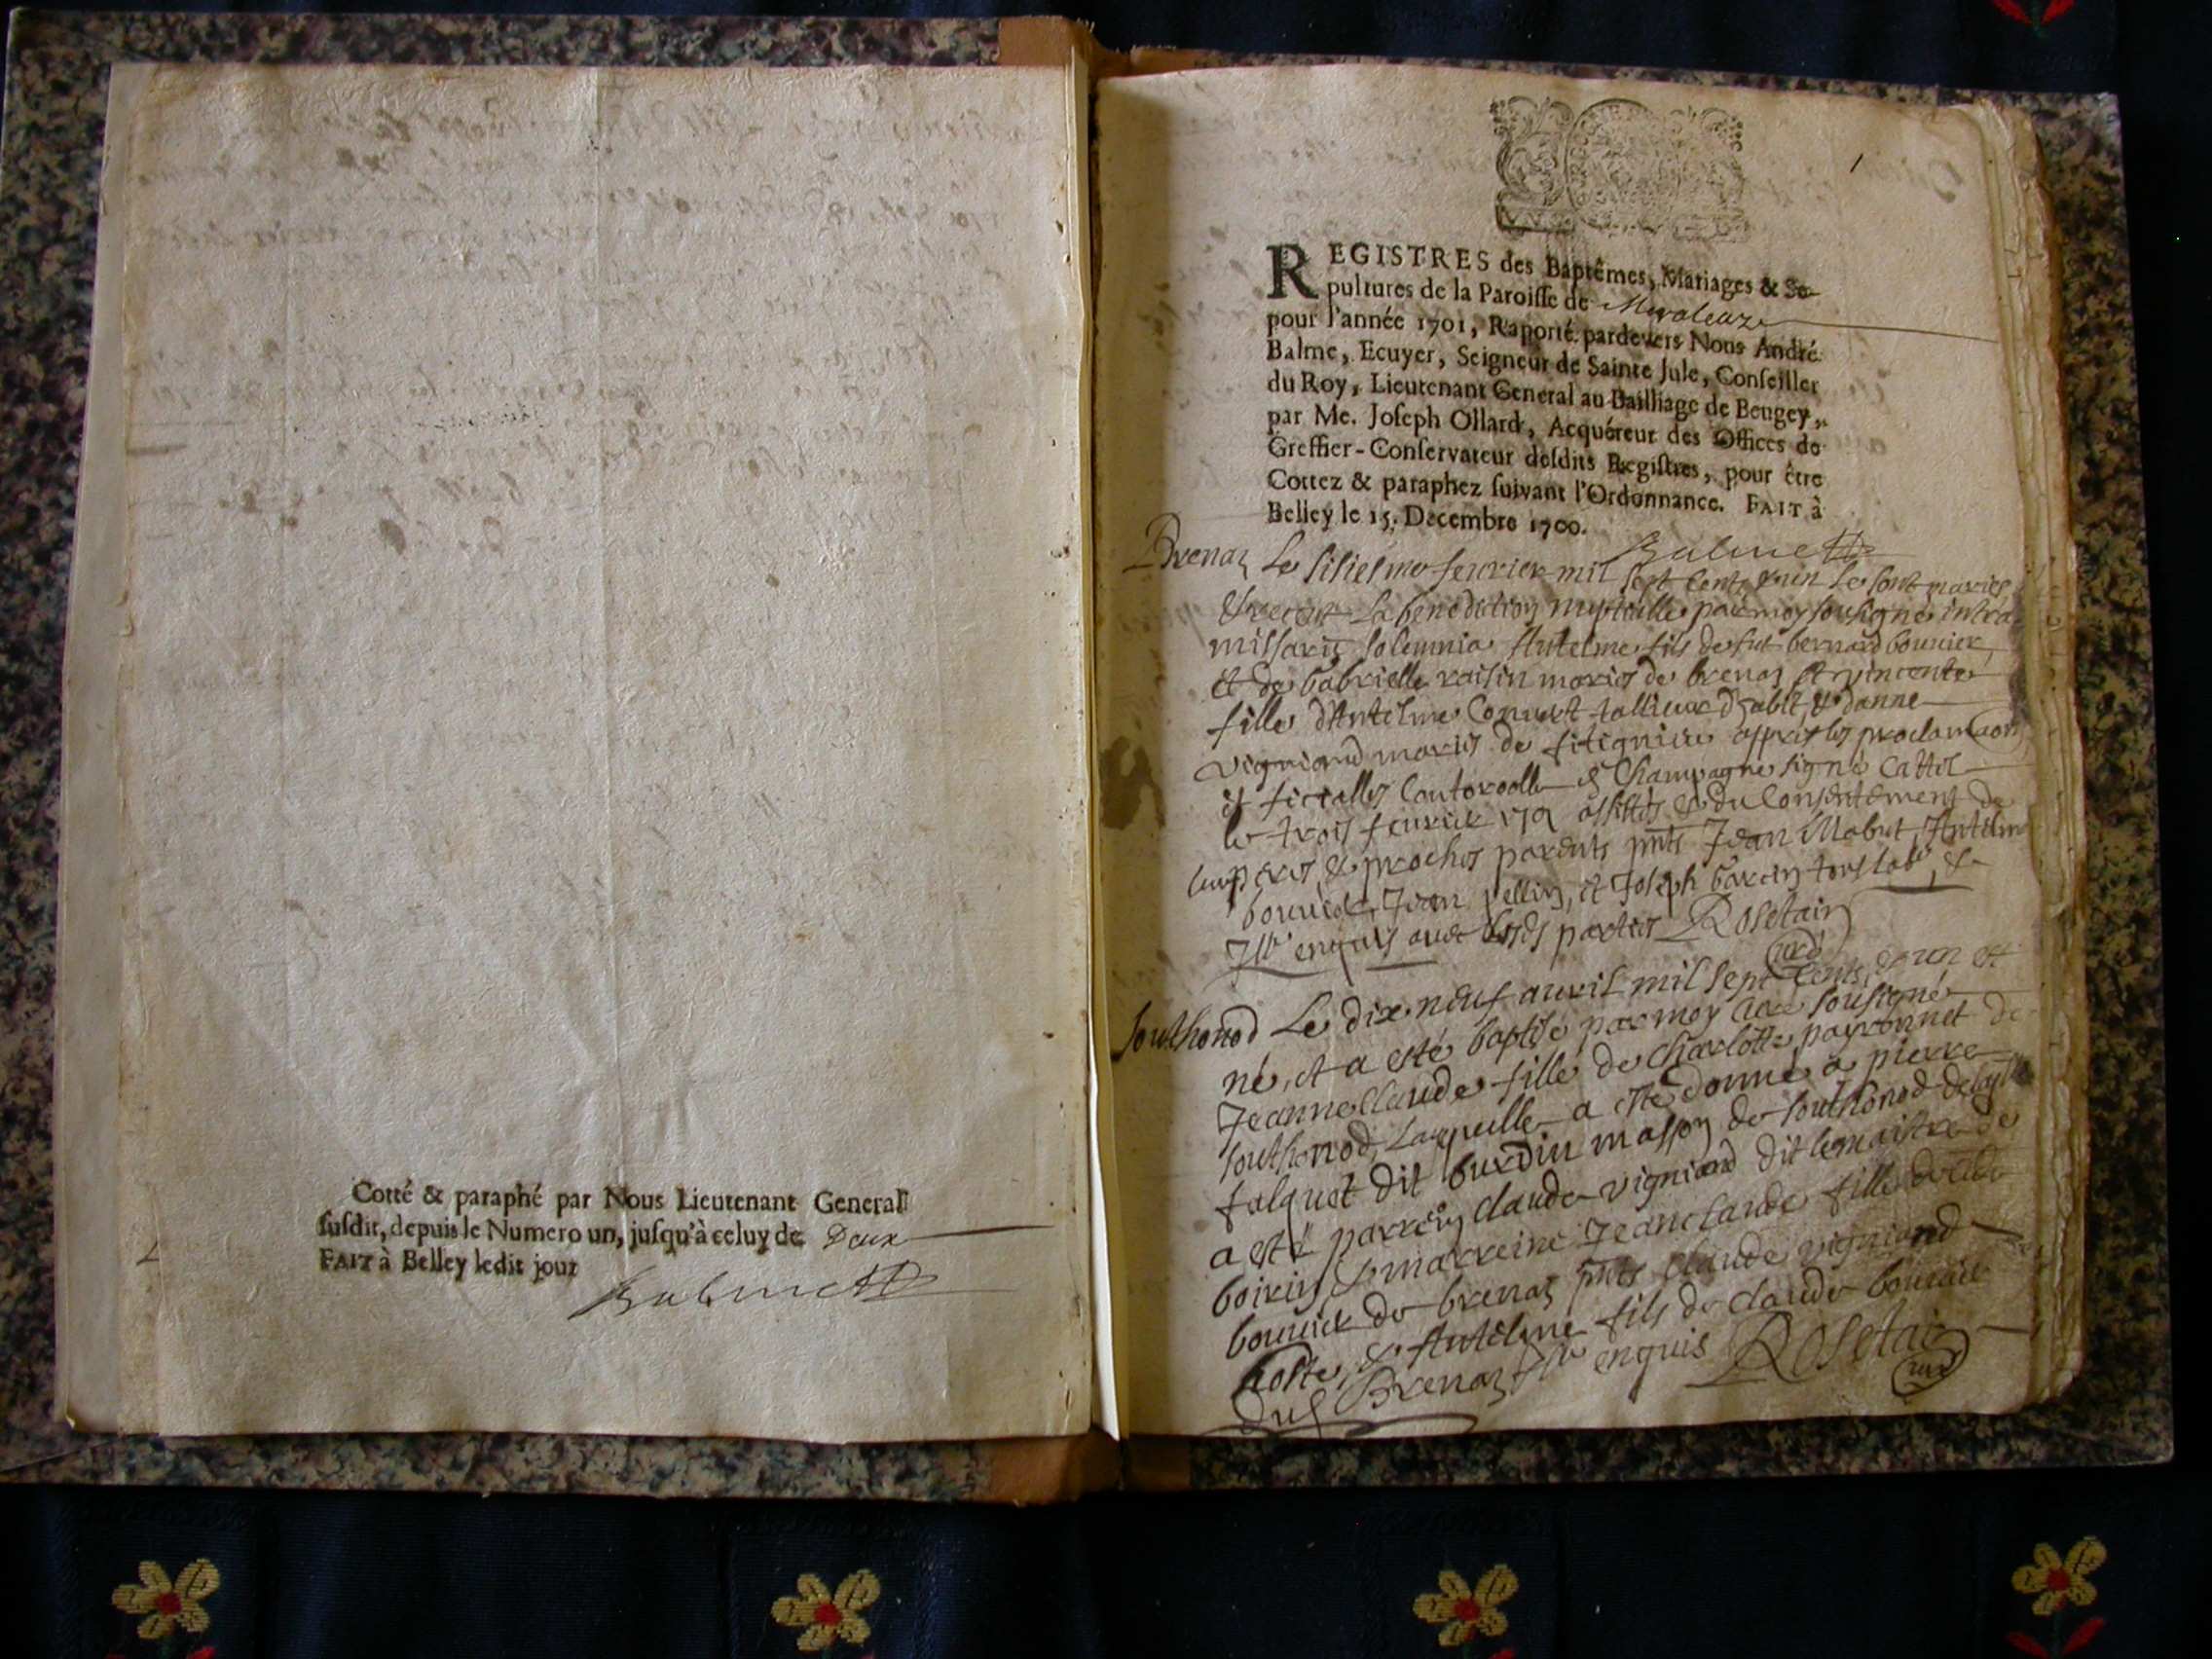 Cotté & paraphé par Nous Lieutenant General
ſuſdit, depuis le Numero un, juſqu'à celuy de Deux
FAIT à Belley ledit jour
1
REGISTRES des Baptêmes, Mariages & Se-
pultures de la Paroiſſe de
pour l'année 1701, Raporté pardevers Nous André
Balme, Ecuyer, Seigneur de Sainte Jule, Conſeiller
du Roy, Lieutenant General au Bailliage de Beugey,
par Me. Joſeph Ollard, Acquéreur des Offices de
Greffier-Conſervateur deſdits Regiſtres, pour être
Cottez & paraphez ſuivant l'Ordonnance. FAIT à
Belley le 15. Decembre 1700.
Brenaz Le sisiesme feurier mil sept cents & un se sont mariés
la benediction nuptialle par moy soussigné intra
missarum solemnia Antelme fils de fut bernard bouuier
et de Gabrielle raisin mariés de brenaz et vincente
fille d'Antelme tallieur d'abit & danne
vigniand mariés de fitignieu appres les proclamaon
Champagne signé Cattel
le trois feurier 1701 assistés & du Consentement de
leurs peres & proches parents pnts Jean Mabut, Antelme
bouuier, Jean vellin, et Joseph barcin tous &
enquis auec lesds parties Rosetain
curé
southonod Le dix neuf auril mil sept cents & un est
né, et a esté baptisé par moy curé sousigné
Jeanneclaude fille de charlotte payronnet de
southonod, laquelle a esté donné a pierre
falquet dit burdin masson de southonod
a esté parrein claude vigniand dit lemaistre de
boirin & marreine Jeanclaude fille
bouuier de brenaz pnts claude vigniand
hoste, & Antelme fils de claude bouuier
dud Brenaz enquis Rosetain
curé